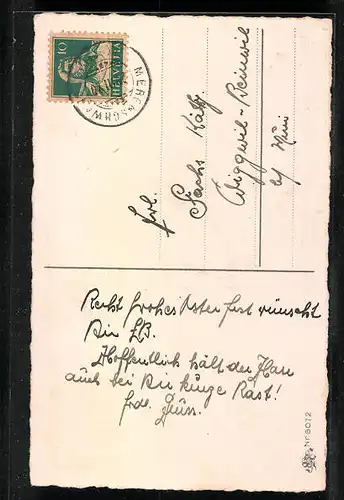 10
HELVETIA
MERENSCHW
Frl.
Sachs Käth.
Wiggwil-Beinwil
b/ Muri
Recht frohes Osterfest wünscht
Dir LB.
Hoffentlich hält der Has
auch bei Dir kurze Rast!
frdl. Gruss.
Nr. 8072